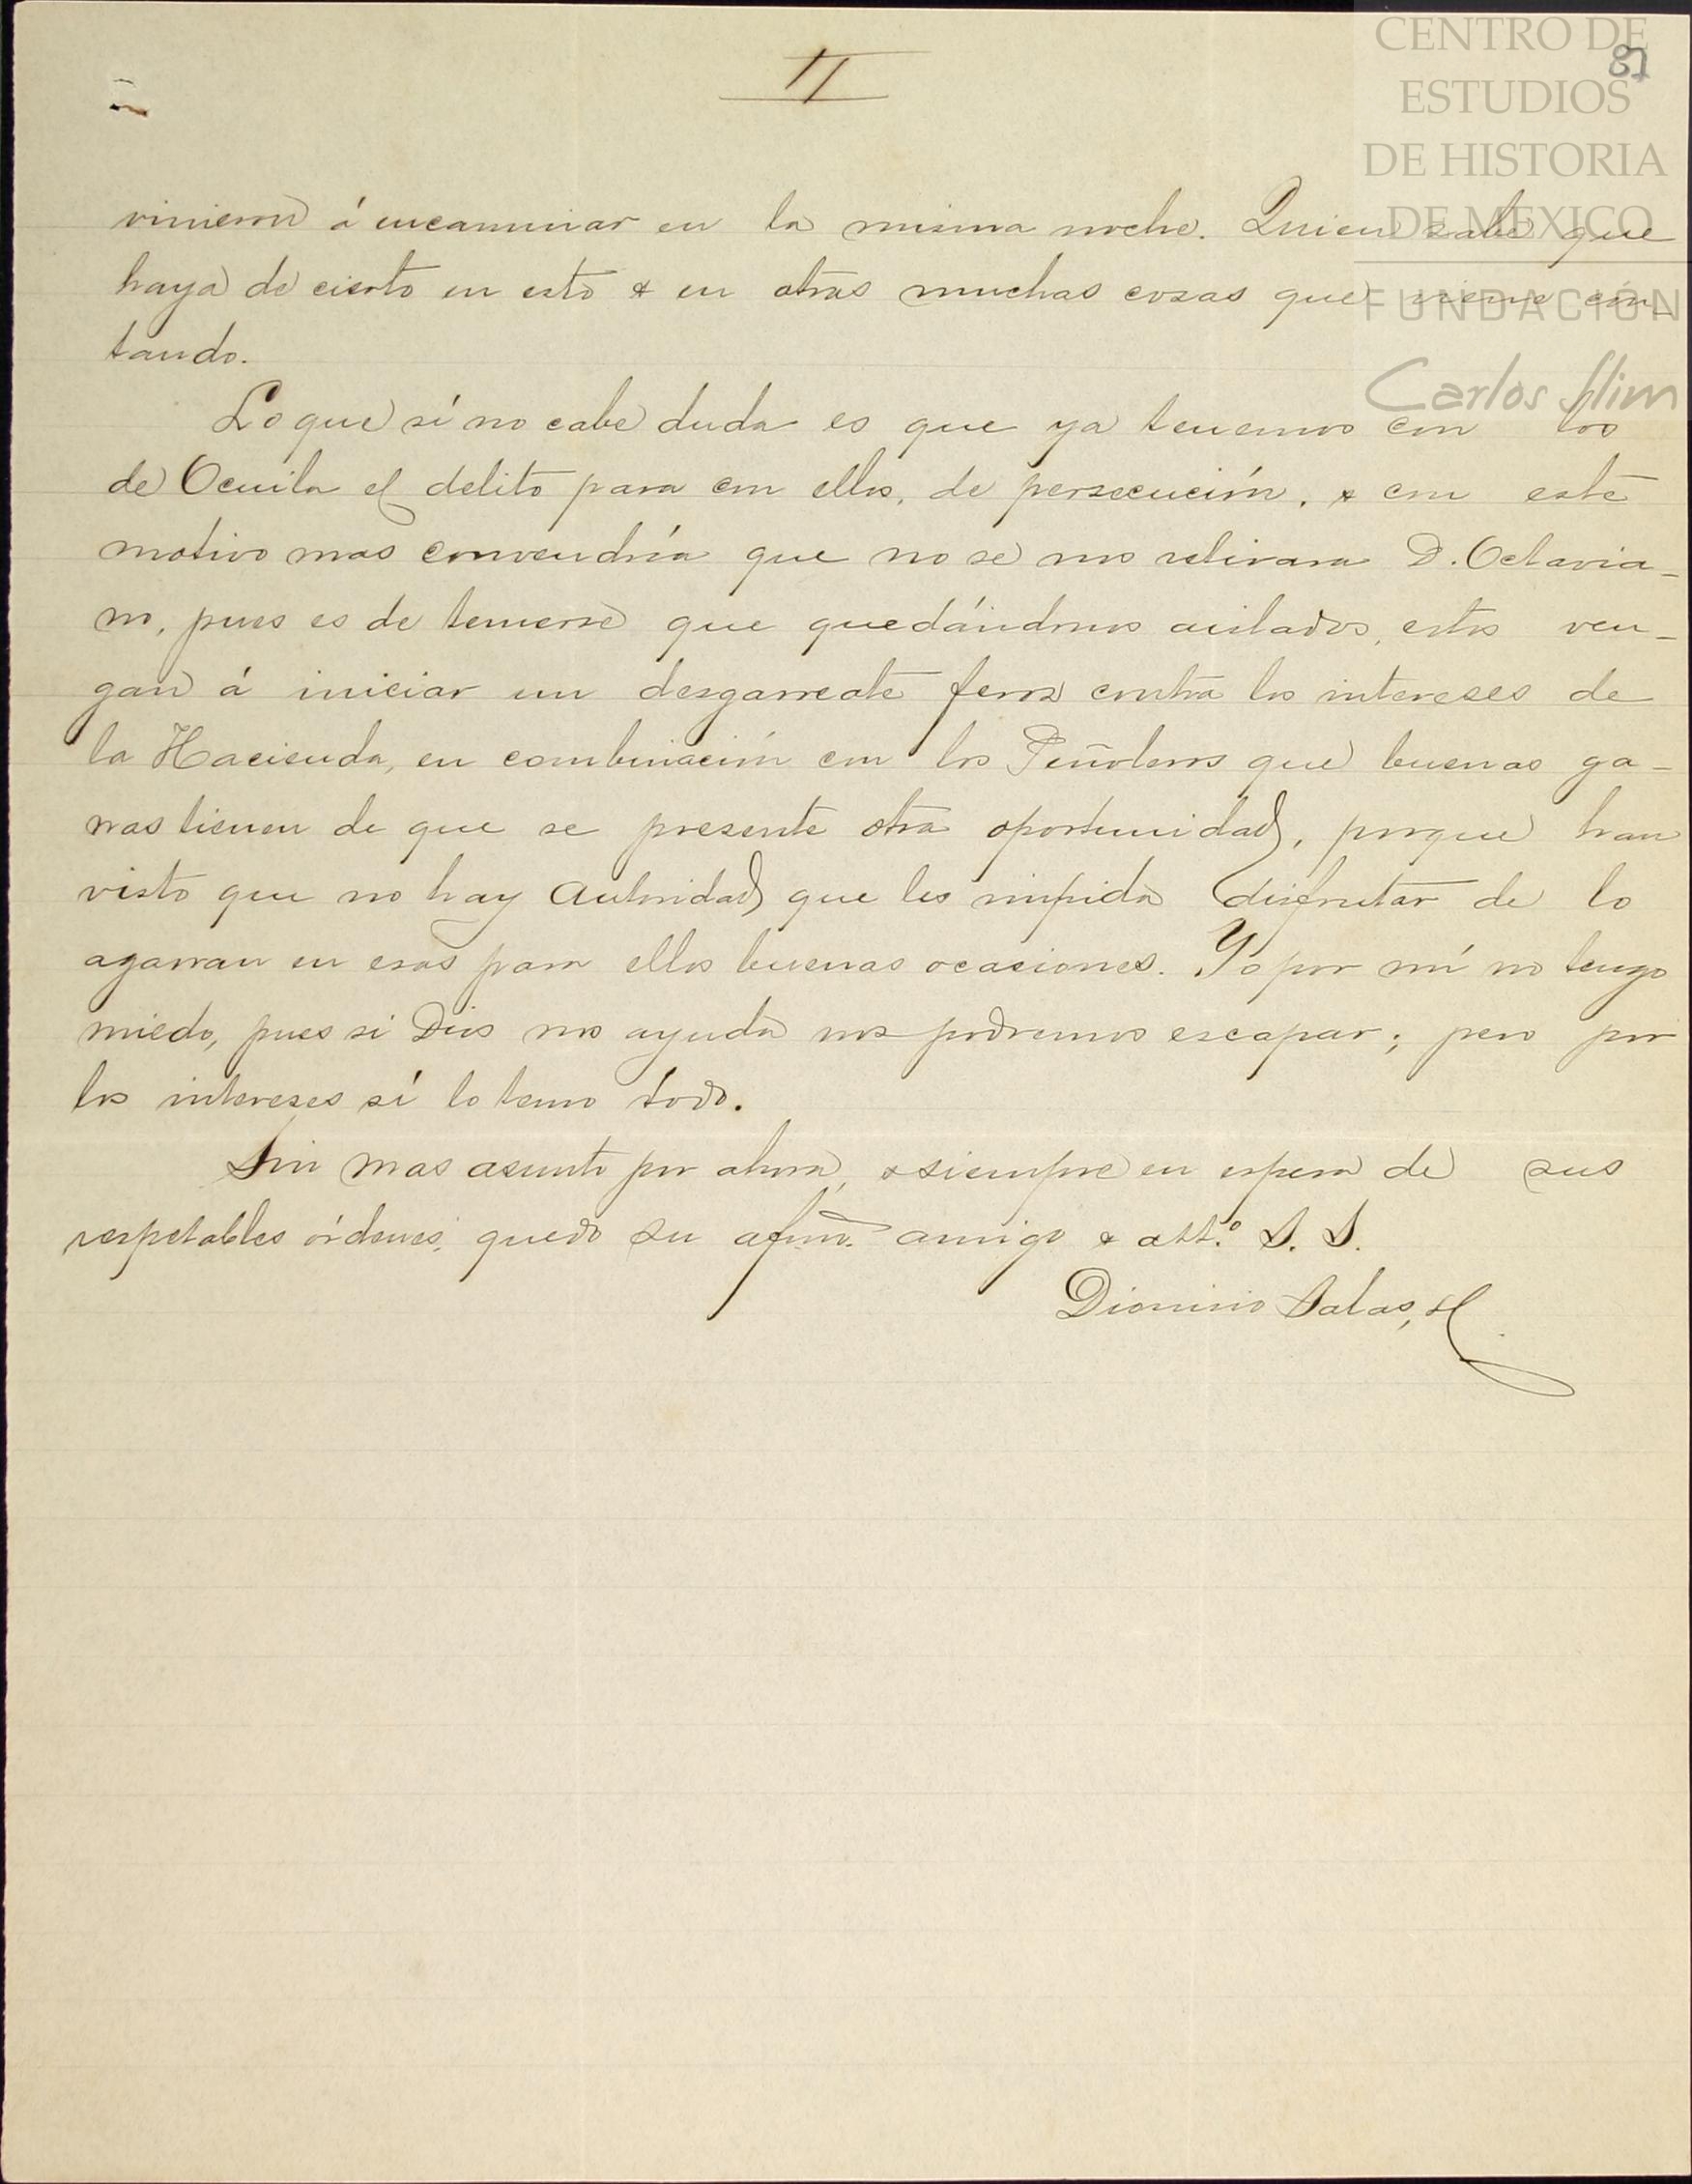 II
87
CENTRO DE
ESTUDIOS
DE HISTORIA
DE MÉXICO
FUNDACIÓN
Carlos Slim
vinieron á encaminar en la misma noche. Quien sabe que
haya de cierto en esto & en otras muchas cosas que viene con-
tando.
Lo que sí no cabe duda es que ya tenemos con los
de Ocuila el delito para con ellos, de persecución, & con este
motivo mas convendría que no se nos retirara D. Octavia-
no, pues es de temerse que quedándonos aislados, estos ven-
gan á iniciar un desgarreate feroz contra los intereses de
la Hacienda, en combinación con los Peñoleros que buenas ga-
nas tienen de que se presente otra oportunidad, porque han
visto que no hay Autoridad que les impida disfrutar de lo
agarran en esas para ellos buenas ocasiones. Yo por mí no tengo
miedo, pues si Dios nos ayuda nos podremos escapar; pero por
los intereses sí lo temo todo.
Sin mas asunto por ahora, & siempre en espera de sus
respetables órdenes, quedo su afmo. amigo & att.º S. S.
Dionisio Salas, H